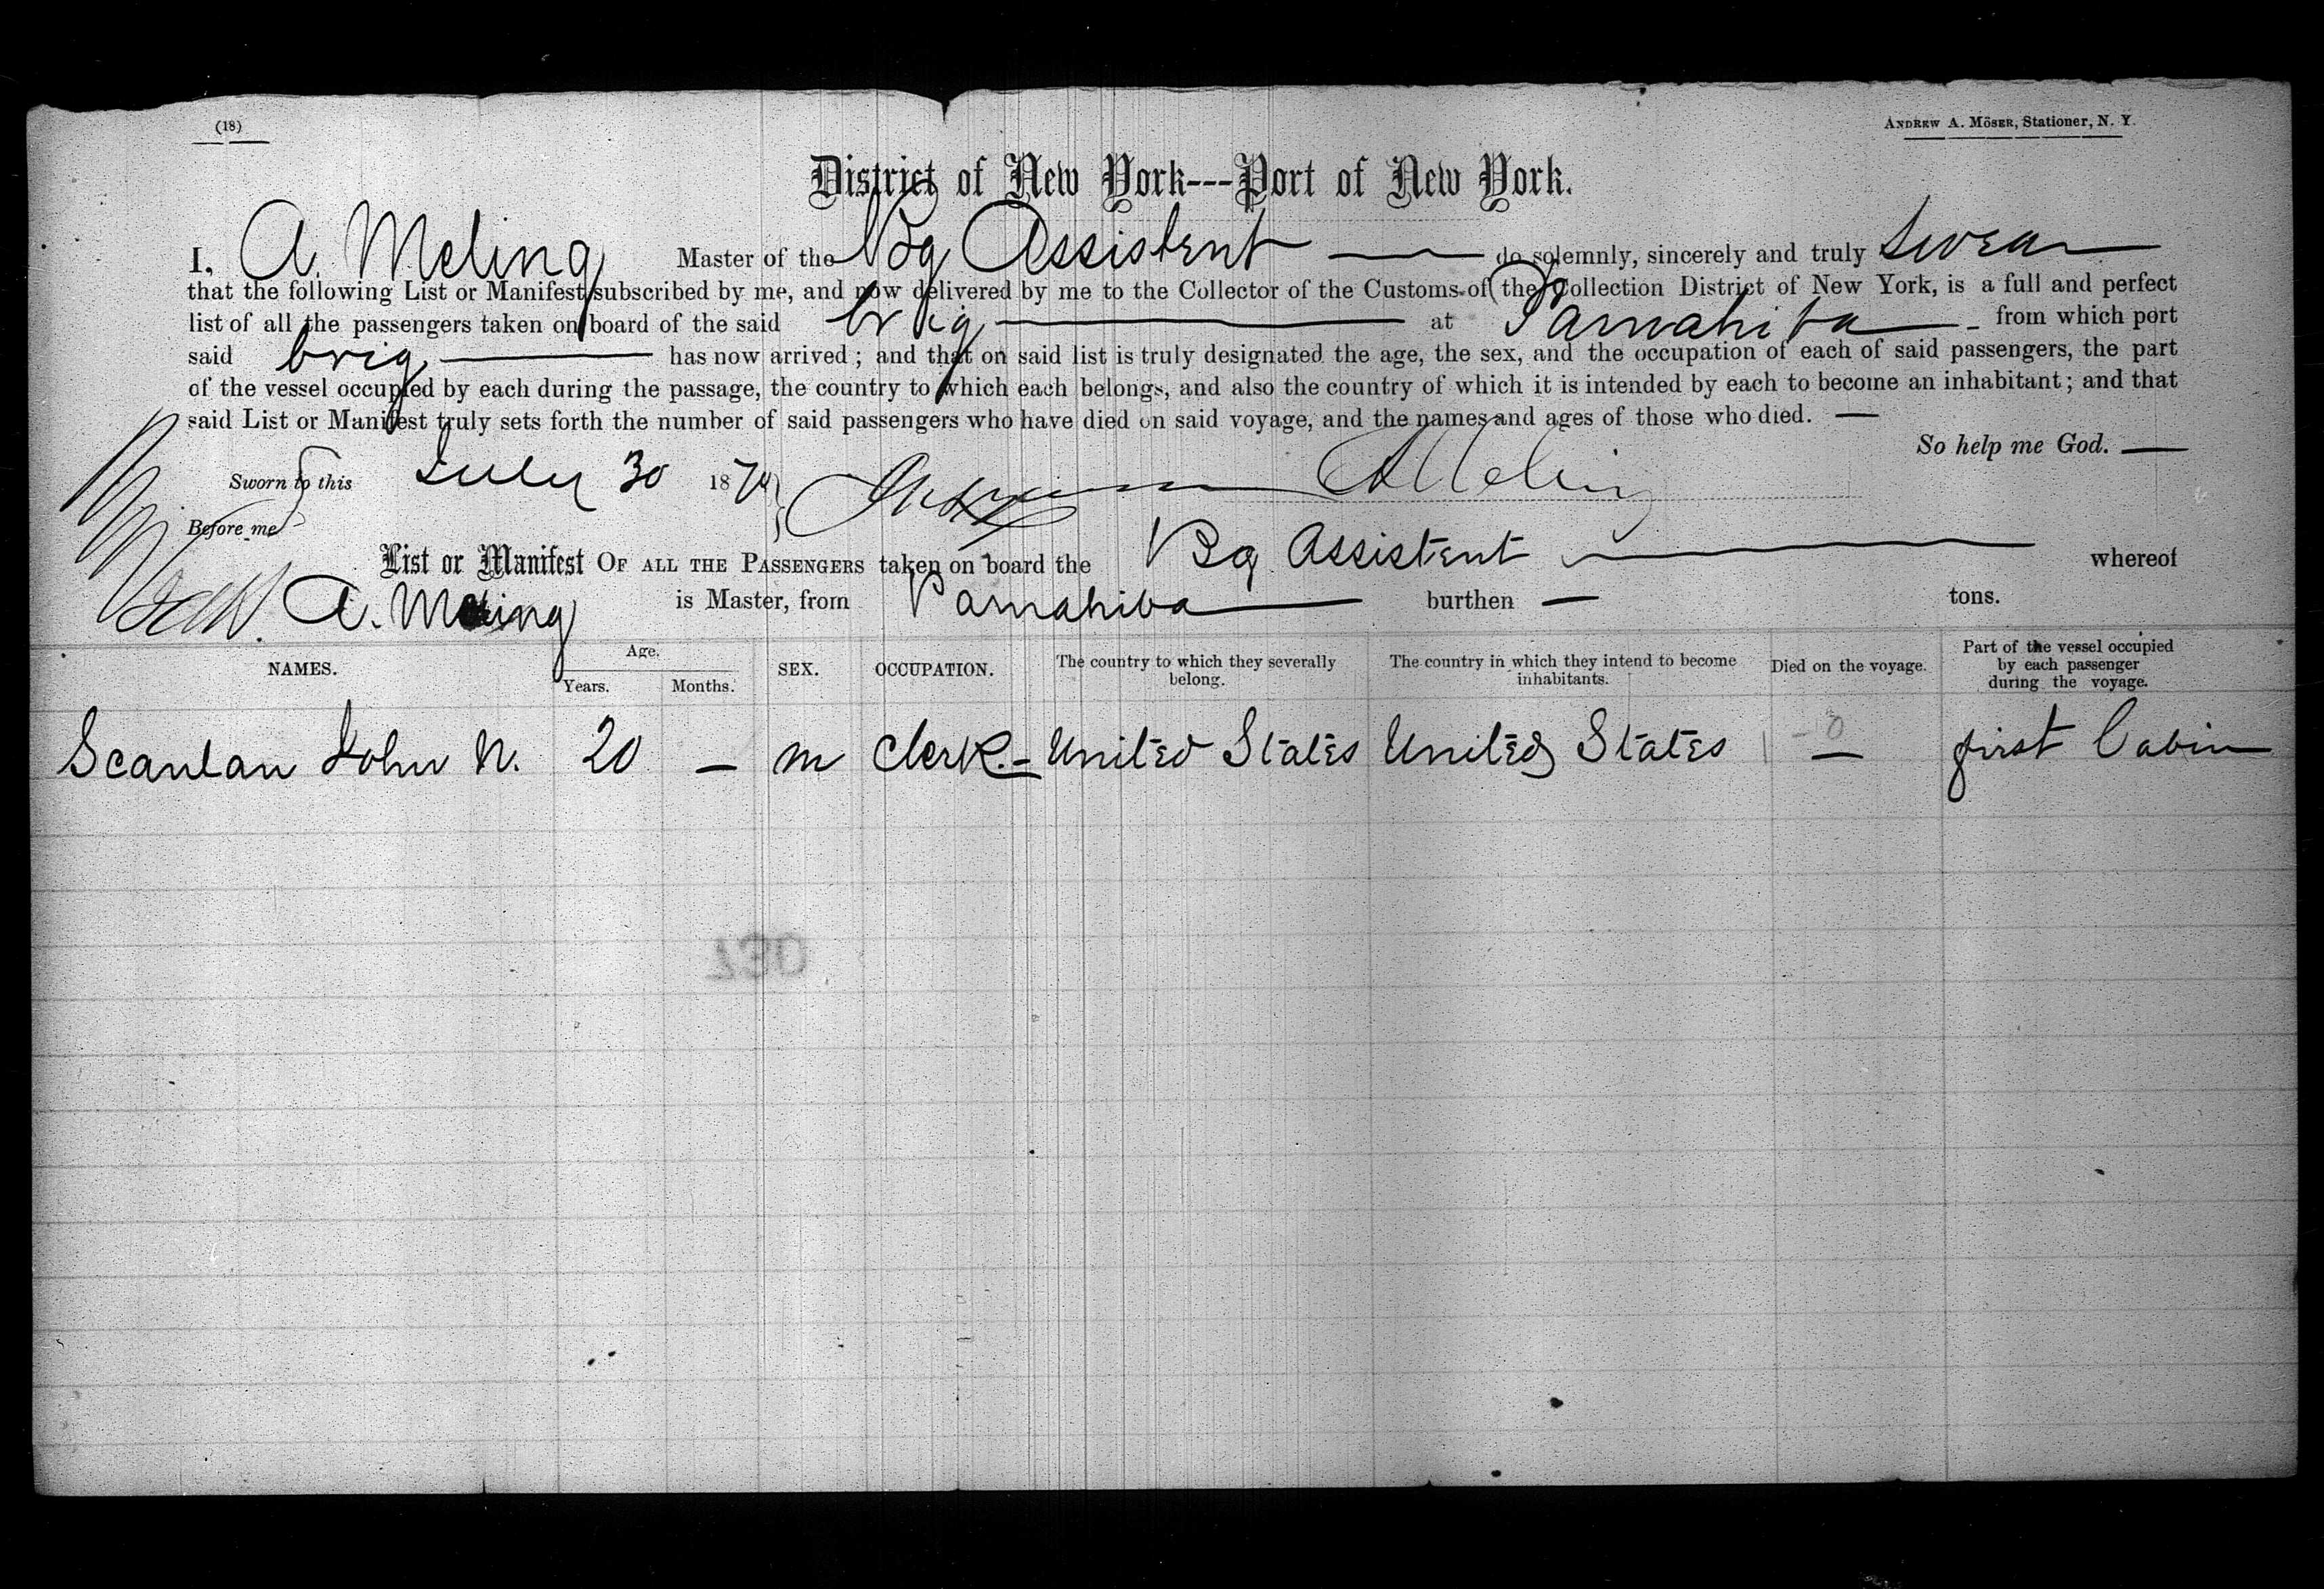 (18)
ANDREW A. MÖSER, Stationer, N. Y.
District of New York---Port of New York.
I, A. Meling Master of the Bg Assistent do solemnly, sincerely and truly swear
that the following List or Manifest subscribed by me, and now delivered by me to the Collector of the Customs of the Collection District of New York, is a full and perfect
list of all the passengers taken on board of the said brig at Parnahiba from which port
said brig has now arrived; and that on said list is truly designated the age, the sex, and the occupation of each of said passengers, the part
of the vessel occupied by each during the passage, the country to which each belongs, and also the country of which it is intended by each to become an inhabitant; and that
said List or Manifest truly sets forth the number of said passengers who have died on said voyage, and the names and ages of those who died. —
So help me God. —
Sworn to this July 30 187 A Meling
Before me
List or Manifest OF ALL THE PASSENGERS taken on board the Bg Assistent whereof
A. Meling is Master, from Parnahiba burthen — tons.
NAMES. Age. Years. Months. SEX. OCCUPATION. The country to which they severally belong. The country in which they intend to become inhabitants. Died on the voyage. Part of the vessel occupied by each passenger during the voyage.
Scanlan John N. 20 — m Clerk.- United States United States — first Cabin